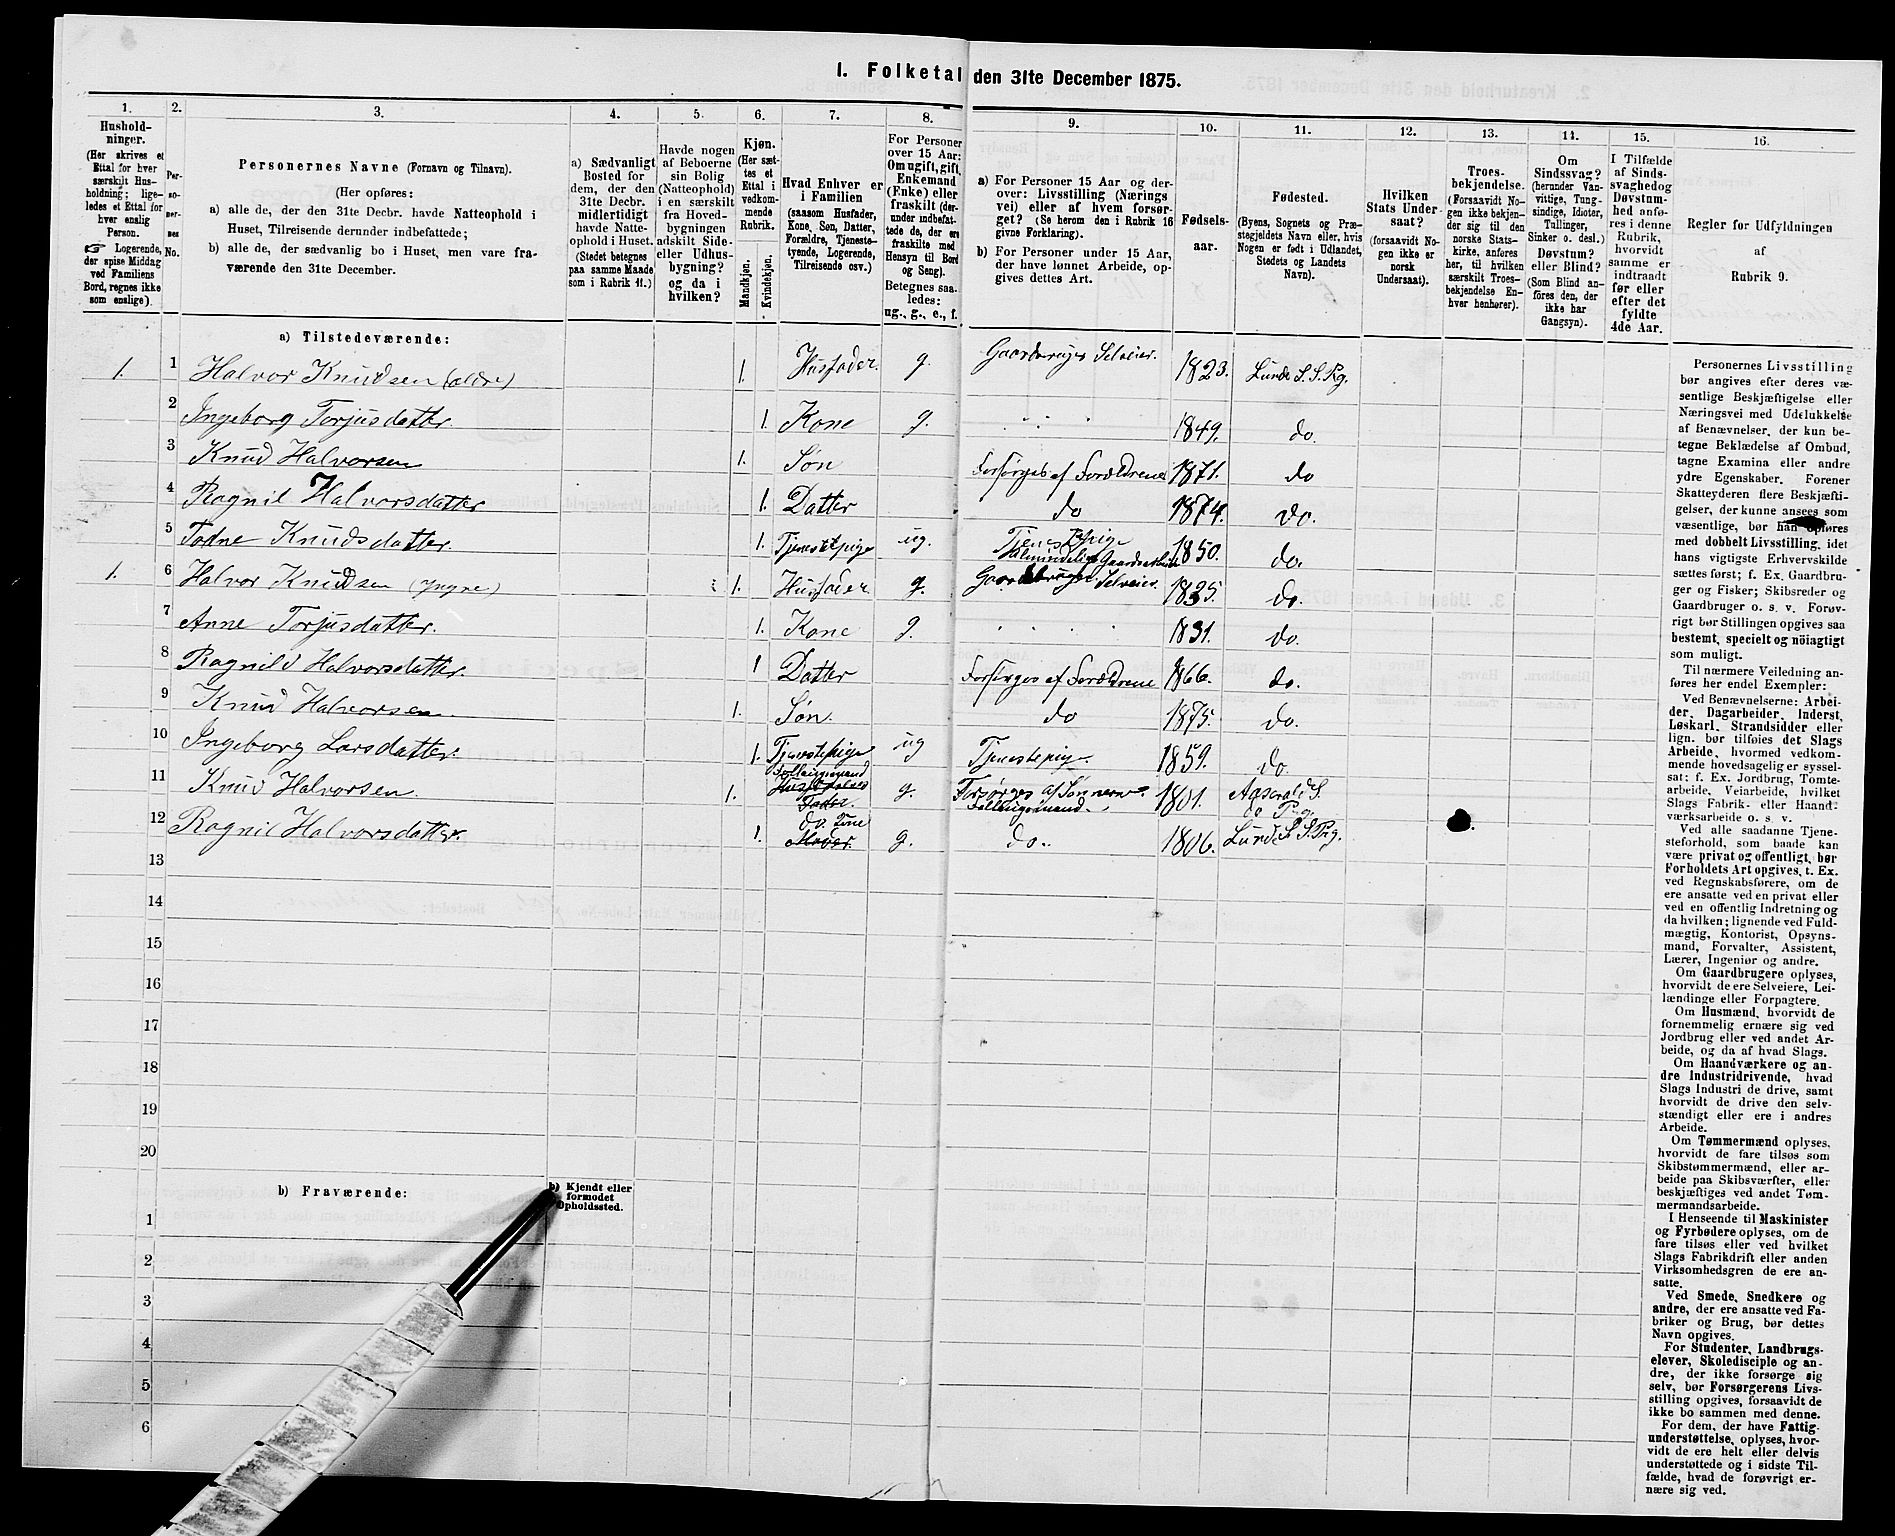 I. Folketal den 31te December 1875.
1.
Hushold-
ninger.
(Her skrives et
Ettal for hver
særskilt Hus-
holdning; lige-
ledes et Ettal for
hver enslig
Person.
☞ Logerende,
der spise Middag
ved Familiens
Bord, regnes ikke
som enslige).
2.
Per-
so-
ner-
nes
No.
3.
Personernes Navne (Fornavn og Tilnavn).
(Her opføres:
a) alle de, der den 31te Decbr. havde Natteophold i
Huset, Tilreisende derunder indbefattede;
b) alle de, der sædvanlig bo i Huset, men vare fra-
værende den 31te December.
4.
a) Sædvanligt
Bosted for
dem, der den
31te Decbr.
midlertidigt
havde Natte-
ophold i Huset.
(Stedet betegnes
paa samme Maade
som i Rubrik 11.)
5.
Havde nogen
af Beboerne
sin Bolig
(Natteophold)
i en særskilt
fra Hoved-
bygningen
adskilt Side-
eller Udhus-
bygning?
og da i
hvilken?
6.
Kjøn.
(Her sæt-
tes et
Ettal i
vedkom-
mende
Rubrik.
Mandkjøn.
Kvindekjøn.
7.
Hvad Enhver er
i Familien
(saasom Husfader,
Kone, Søn, Datter,
Forældre, Tjeneste-
tyende, Logerende,
Tilreisende osv.)
8.
For Personer
over 15 Aar:
Om ugift, gift,
Enkemand
(Enke) eller
fraskilt (der-
under indbefat-
tede de, der ere
fraskilte med
Hensyn til Bord
og Seng).
Betegnes saa-
ledes:
ug., g., e., f.
9.
a) For Personer 15 Aar og der-
over: Livsstilling (Nærings
vei) eller af hvem forsør-
get? (Se herom den i Rubrik 16
givne Forklaring).
b) For Personer under 15 Aar,
der have lønnet Arbeide, op-
gives dettes Art.
10.
Fødsels-
aar.
11.
Fødested.
(Byens, Sognets og Præ-
stegjeldets Navn eller, hvis
Nogen er født i Udlandet,
Stedets og Landets
Navn).
12.
Hvilken
Stats Under
saat?
(forsaavidt No-
gen ikke er
norsk
Undersaat).
13.
Troes-
bekjendelse.
(Forsaavidt No-
gen ikke bekjen-
der sig til den
norske Stats-
kirke, anføres
her, til hvilken
særskilt Troes-
bekjendelse En-
hver henhører).
14.
Om
Sindssvag?
(herunder Van-
vittige, Tung-
sindige, Idioter,
Tullinger,
Sinker o. desl.)
Døvstum?
eller Blind?
(Som Blind an-
føres den, der
ikke har
Gangsyn).
15.
I Tilfælde
af Sinds-
svaghed og
Døvstum-
hed anfø-
res i denne
Rubrik,
hvorvidt
samme er
indtraadt
før eller
efter det
fyldte
4de Aar.
16.
Regler for Udfyldningen
af
Rubrik 9.
a) Tilstedeværende:
1. 1 Halvor Knudsen (ældre) 1. Husfader. g. Gaardbruger Selveier. 1823. Lunde S. S. Prg.
2 Ingeborg Torjusdatter. 1. Kone g. 1849. do.
3 Knud Halvorsen 1. Søn Forsørges af Forældrene 1871. do
4 Ragnil Halvorsdatter 1. Datter do 1874. do.
5 Tadne Knudsdatter. 1. Tjenestepige ug. Tjenestepige Almindelig Gaardsarbeide 1850. do.
1. 6 Halvor Knudsen (yngre) 1. Husfader. g. Gaardbruger Selveier. 1835. do.
7 Anne Torjusdatter. 1. Kone g. 1831. do.
8 Ragnild Halvorsdatter. 1 Datter Forsørges af Forældrene 1866. do.
9 Knud Halvorsen. 1. Søn. do 1875. do.
10 Ingeborg Larsdatter. 1. Tjenestepige ug Tjenestepige. 1859. do
11 Knud Halvorsen. 1. Fader. g. Forsørges af Sønnerne. 1801. Aaserald S. do Prg.
12 Ragnil Halvorsdatter. 1. do. Kone Moder. g. do.. 1806. Lunde S. S. Prg.
13
14
15
16
17
18
19
20
b) Fraværende:
b) Kjendt eller
formodet
Opholdssted.
1
2
3
4
5
6
Personernes Livsstilling
bør angives efter deres væ-
sentlige Beskjæftigelse eller
Næringsvei med Udelukkelse
af Benævnelser, der kun be-
tegne Beklædelse af Ombud,
tagne Examina eller andre
ydre Egenskaber. Forener
Skatteyderen flere Beskjæfti-
gelser, der kunne ansees som
væsentlige, bør han opføres
med dobbelt Livsstilling, idet
hans vigtigste Erhvervskilde
sættes først; f. Ex. Gaardbru-
ger og Fisker; Skibsreder og
Gaardbruger o. s. v. Forøv-
rigt bør Stillingen opgives saa
bestemt, specielt og nöiagtigt
som muligt.
Til nærmere Veiledning an-
føres her endel Exempler:
Ved Benævnelserne: Arbei-
der, Dagarbeider, Inderst,
Løskarl, Strandsidder eller
lign. bør tilføies det Slags
Arbeide, hvormed vedkom-
mende hovedsagelig er syssel-
sat; f. Ex. Jordbrug, Tomte-
arbeide, Veiarbeide, hvilket
Slags Fabrik- eller Haand-
værksarbeide o. s. v.
Ved alle saadanne Tjene-
steforhold, som baade kan
være privat og offentligt, bør
Forholdets Art opgives, t. Ex.
ved Regnskabsførere, om de
ere ansatte ved en privat eller
ved en offentlig Indretning og
da hvilken; lignende ved Fuld-
mægtig, Kontorist, Opsyns-
mand, Forvalter, Assistent,
Lærer, Ingeniør og andre.
Om Gaardbrugere oplyses,
hvorvidt de ere Selveiere, Lei-
lændinge eller Forpagtere.
Om Husmænd, hvorvidt de
fornemmelig ernære sig ved
Jordbrug eller ved andet Ar-
beide, og da af hvad Slags.
Om Haandværkere og an-
dre Industridrivende, hvad
Slags Industri de drive, samt
hvorvidt de drive den selv-
stændigt eller ere i andres
Arbeide.
Om Tømmermænd oplyses,
hvorvidt de fare tilsøs som
Skibstømmermænd, eller ar-
beide paa Skibsværfter, eller
beskjæftiges ved andet Tøm-
mermandsarbeide.
I Henseende til Maskinister
og Fyrbødere oplyses, om de
fare tilsøs eller ved hvilket
Slags Fabrikdrift eller anden
Virksomhedsgren de ere an-
satte.
Ved Smede, Snedkere og
andre, der ere ansatte ved Fa-
briker og Brug, bør dettes
Navn opgives.
For Studenter, Landbrugs-
elever, Skoledisciple og an-
dre, der ikke forsørge sig
selv, bør Forsørgerens Livs-
stilling opgives, forsaavidt de
ikke bo sammen med denne.
For dem, der have Fattig-
understøttelse, oplyses, hvor-
vidt de ere helt eller delvis
understøttede og i sidste Til-
fælde, hvad de forøvrigt er-
nære sig ved.